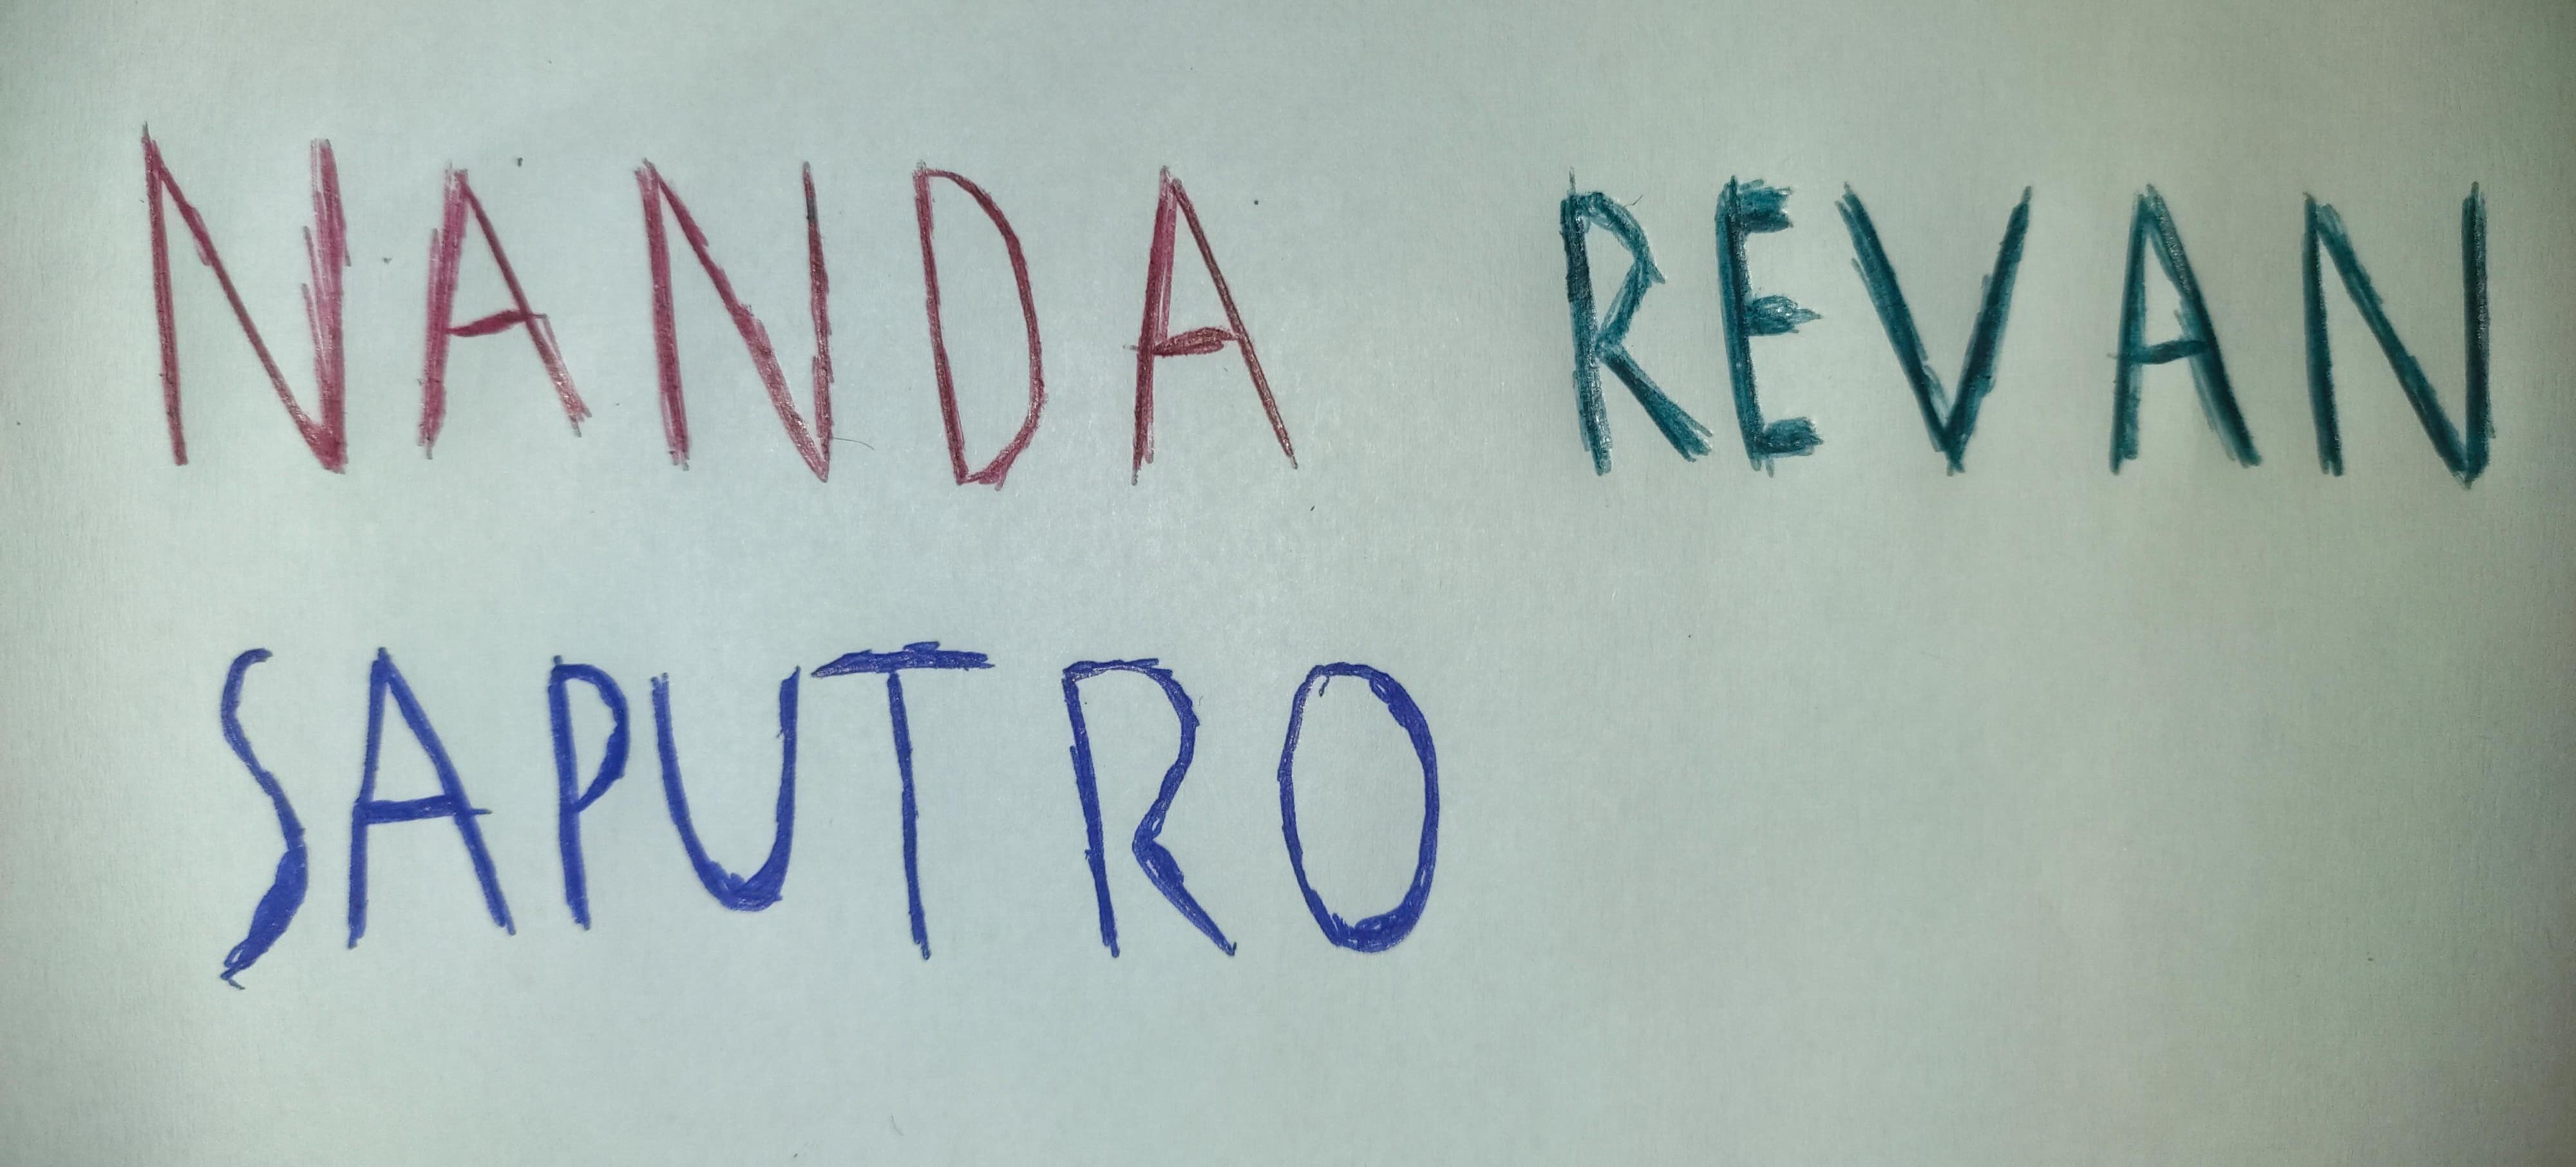 NANDA REVAN
SAPUTRO